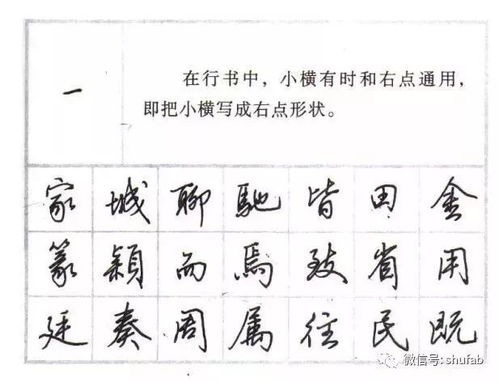 一
在行书中，小横有时和右点通用，
即把小横写成右点形状。
家城聊驰皆田金
篆颖而马致省用
廷奏周属往民既
微信号: shufab